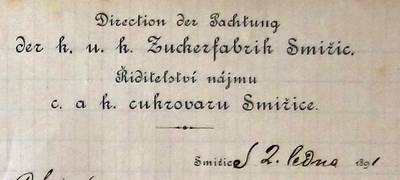 Direction der Pachtung
der k. u. k. Zuckerfabrik Smiřic.
Řiditelství nájmu
c. a k. cukrovaru Smiřice.
Smiřice 2. ledna 1891